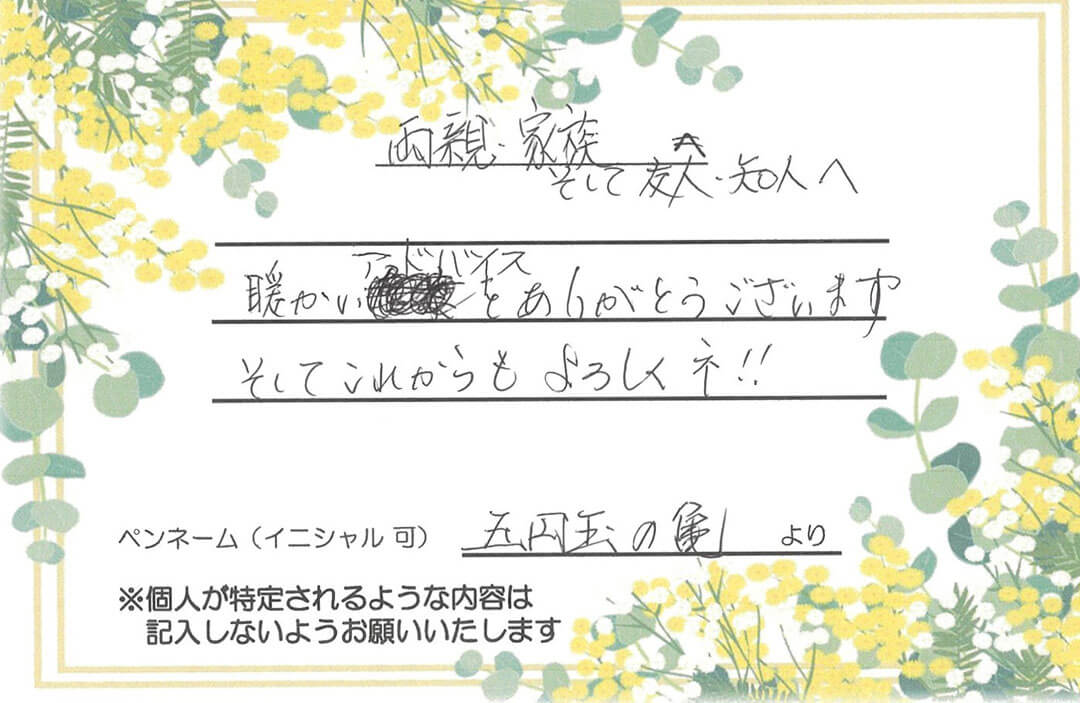 両親・家族 へ
そして友人・知人へ
アドバイス
暖かい をありがとうございます
そしてこれからもよろしくネ!!
ペンネーム（イニシャル 可） 五円玉の亀 より
※個人が特定されるような内容は
記入しないようお願いいたします